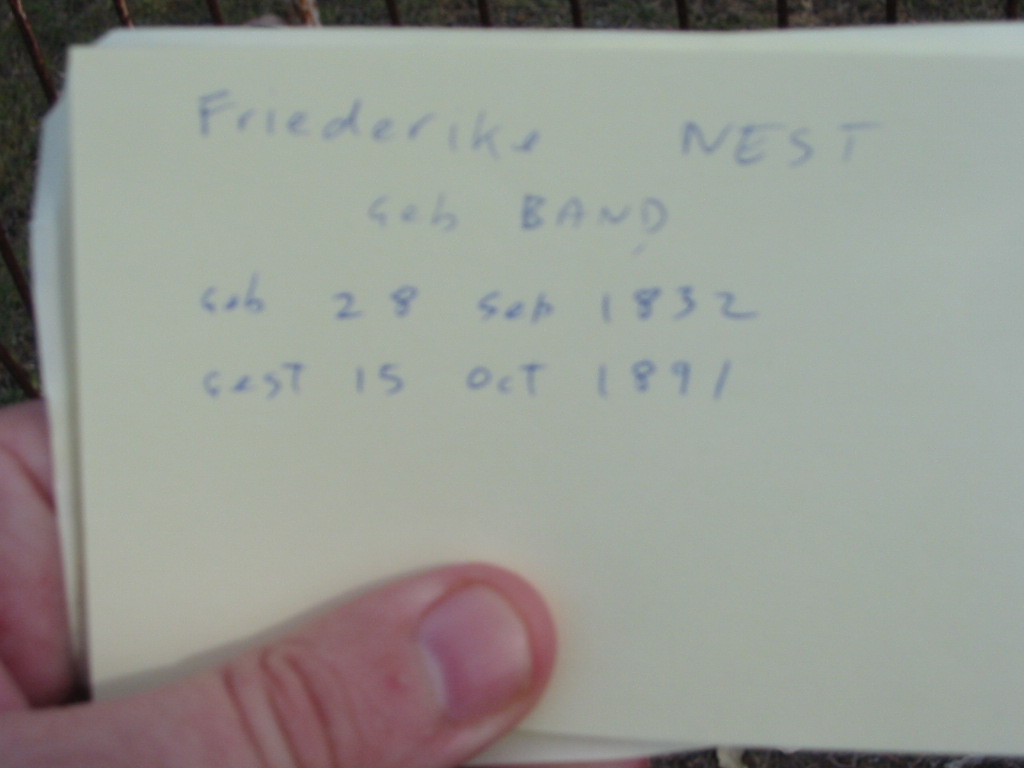 Friederike NEST
geb BAND
geb 28 Sep 1832
gest 15 Oct 1891